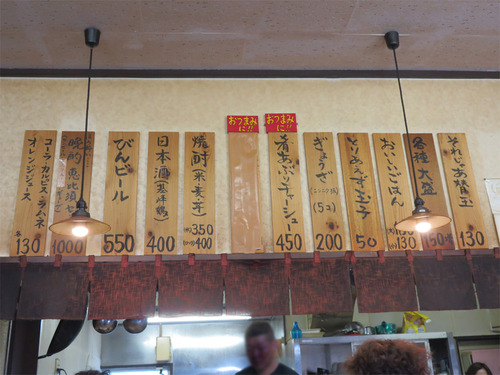 それじゃあ替ヱ玉
130
各種大盛
150
おいしいごはん
130
とりあえず玉子
50
ぎょうざ
(5コ)
200
おつまみ
に!!
肴あぶりチャーシュー
450
おつまみ
に!!
焼酎(米・麦・芋)
350
400
日本酒
400
びんビール
550
1000
コーラ カルピス ラムネ
オレンジジュース
各130